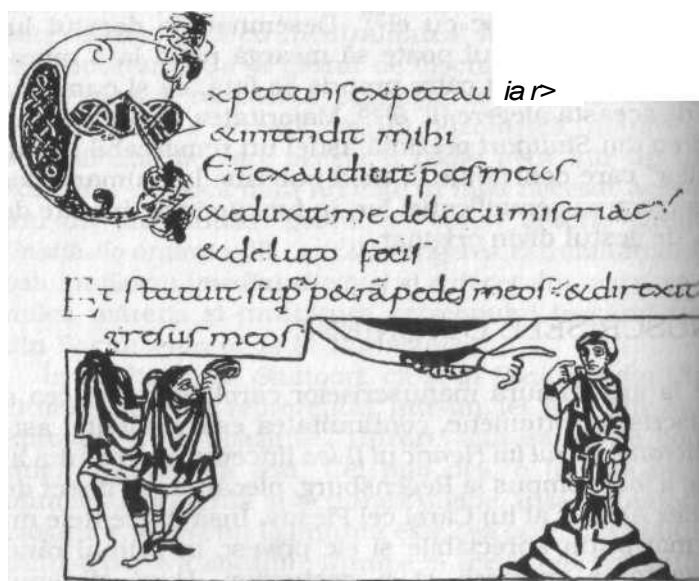 Expectans expectaui iar>
& intendit mihi
Et exaudiuit pces meas
& eduxit me delacu miseriae
& deluto fecis
Et statuit sup p&rā pedes meos & direxit
gressus meos